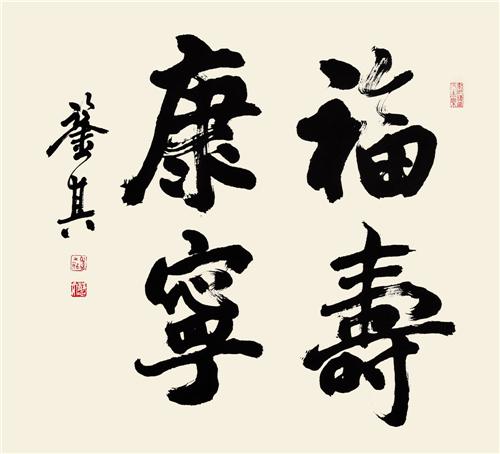 福壽
康寧
其